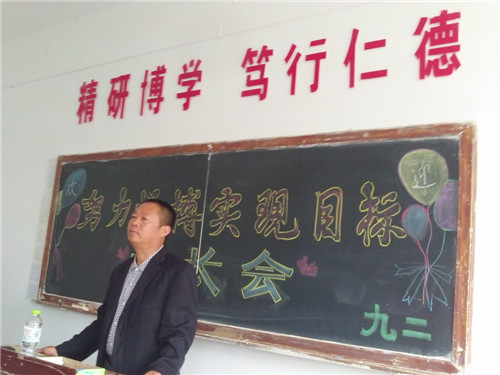 精研博学 笃行仁德
欢 迎
努力拼搏实现目标
长会
九二